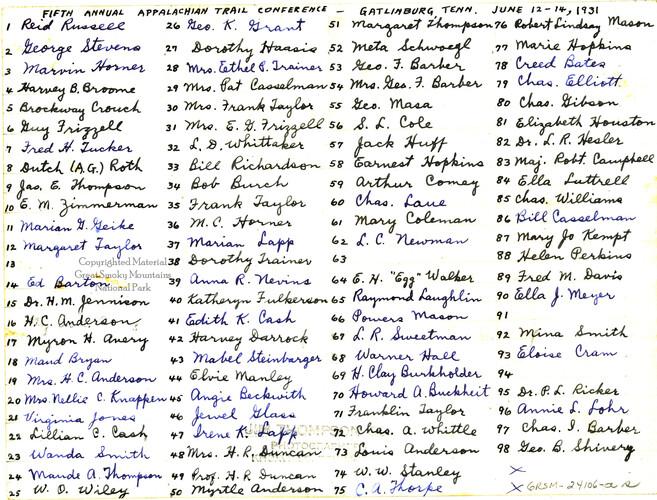 FIFTH ANNUAL APPALACHIAN TRAIL CONFERENCE – GATLINBURG TENN. JUNE 12-14, 1931
1 Reid Russell
2 George Stevens
3 Marvin Horner
4 Harvey B. Broome
5 Brockway Crouch
6 Guy Frizzell
7 Fred H. Tucker
8 Dutch (A.G.) Roth
9 Jas. E. Thompson
10 E. M. Zimmerman
11 Marian G. Geike
12 Margaret Taylor
13
14 Ed Barton
15 Dr. H. M. Jennison
16 H. C. Anderson
17 Myron H. Avery
18 Maud Bryan
19 Mrs. H. C. Anderson
20 Mrs. Nellie C. Knappen
21 Virginia Jones
22 Lillian C. Cash
23 Wanda Smith
24 Maude A. Thompson
25 W. O. Wiley
26 Geo. K. Grant
27 Dorothy Haasis
28 Mrs. Eethel P. Trainer
29 Mrs. Pat Casselman
30 Mrs. Frank Taylor
31 Mrs. E. G. Frizzell
32 L. D. Whittaker
33 Bill Richardson
34 Bob Burch
35 Frank Taylor
36 M. C. Horner
37 Marian Lapp
38 Dorothy Trainer
39 Anna R. Nevins
40 Katheryn Fulkerson
41 Edith K. Cash
42 Harvey Darrock
43 Mabel Steinbarger
44 Elvie Manley
45 Angie Beckwith
46 Jewel Glass
47 Irene K. Lapp
48 Mrs. H. R. Duncan
49 Prof. H. R. Duncan
50 Myrtle Anderson
51 Margaret Thompson
52 Meta Schwoegl
53 Geo. F. Barber
54 Mrs. Geo. F. Barber
55 Geo. Masa
56 S. L. Cole
57 Jack Huff
58 Earnest Hopkins
59 Arthur Comey
60 Chas. Laue
61 Mary Coleman
62 L. C. Newman
63
64 E. H. "Egg" Walker
65 Raymond Laughlin
66 Powers Mason
67 L. R. Sweetman
68 Warner Hall
69 H. Clay Burkholder
70 Howard A. Buckheit
71 Franklin Taylor
72 Chas. A. Whittle
73 Louis Anderson
74 W. W. Stanley
75 C. A. Thorpe
76 Robert Lindsay Mason
77 Marie Hopkins
78 Creed Bates
79 Chas. Elliott
80 Chas. Gibson
81 Elizabeth Houston
82 Dr. L. R. Hesler
83 Maj. Robt. Campbell
84 Ella Luttrell
85 Chas. Williams
86 Bill Casselman
87 Mary Jo Kempt
88 Helen Perkins
89 Fred M. Davis
90 Ella J. Meyer
91
92 Mina Smith
93 Eloise Cram
94
95 Dr. P. L. Ricker
96 Annie L. Lohr
97 Chas. I. Barber
98 Geo. B. Shivery
X
X GRSM-24106-a
Copyrighted Material
Great Smoky Mountains
National Park
THOMPSON